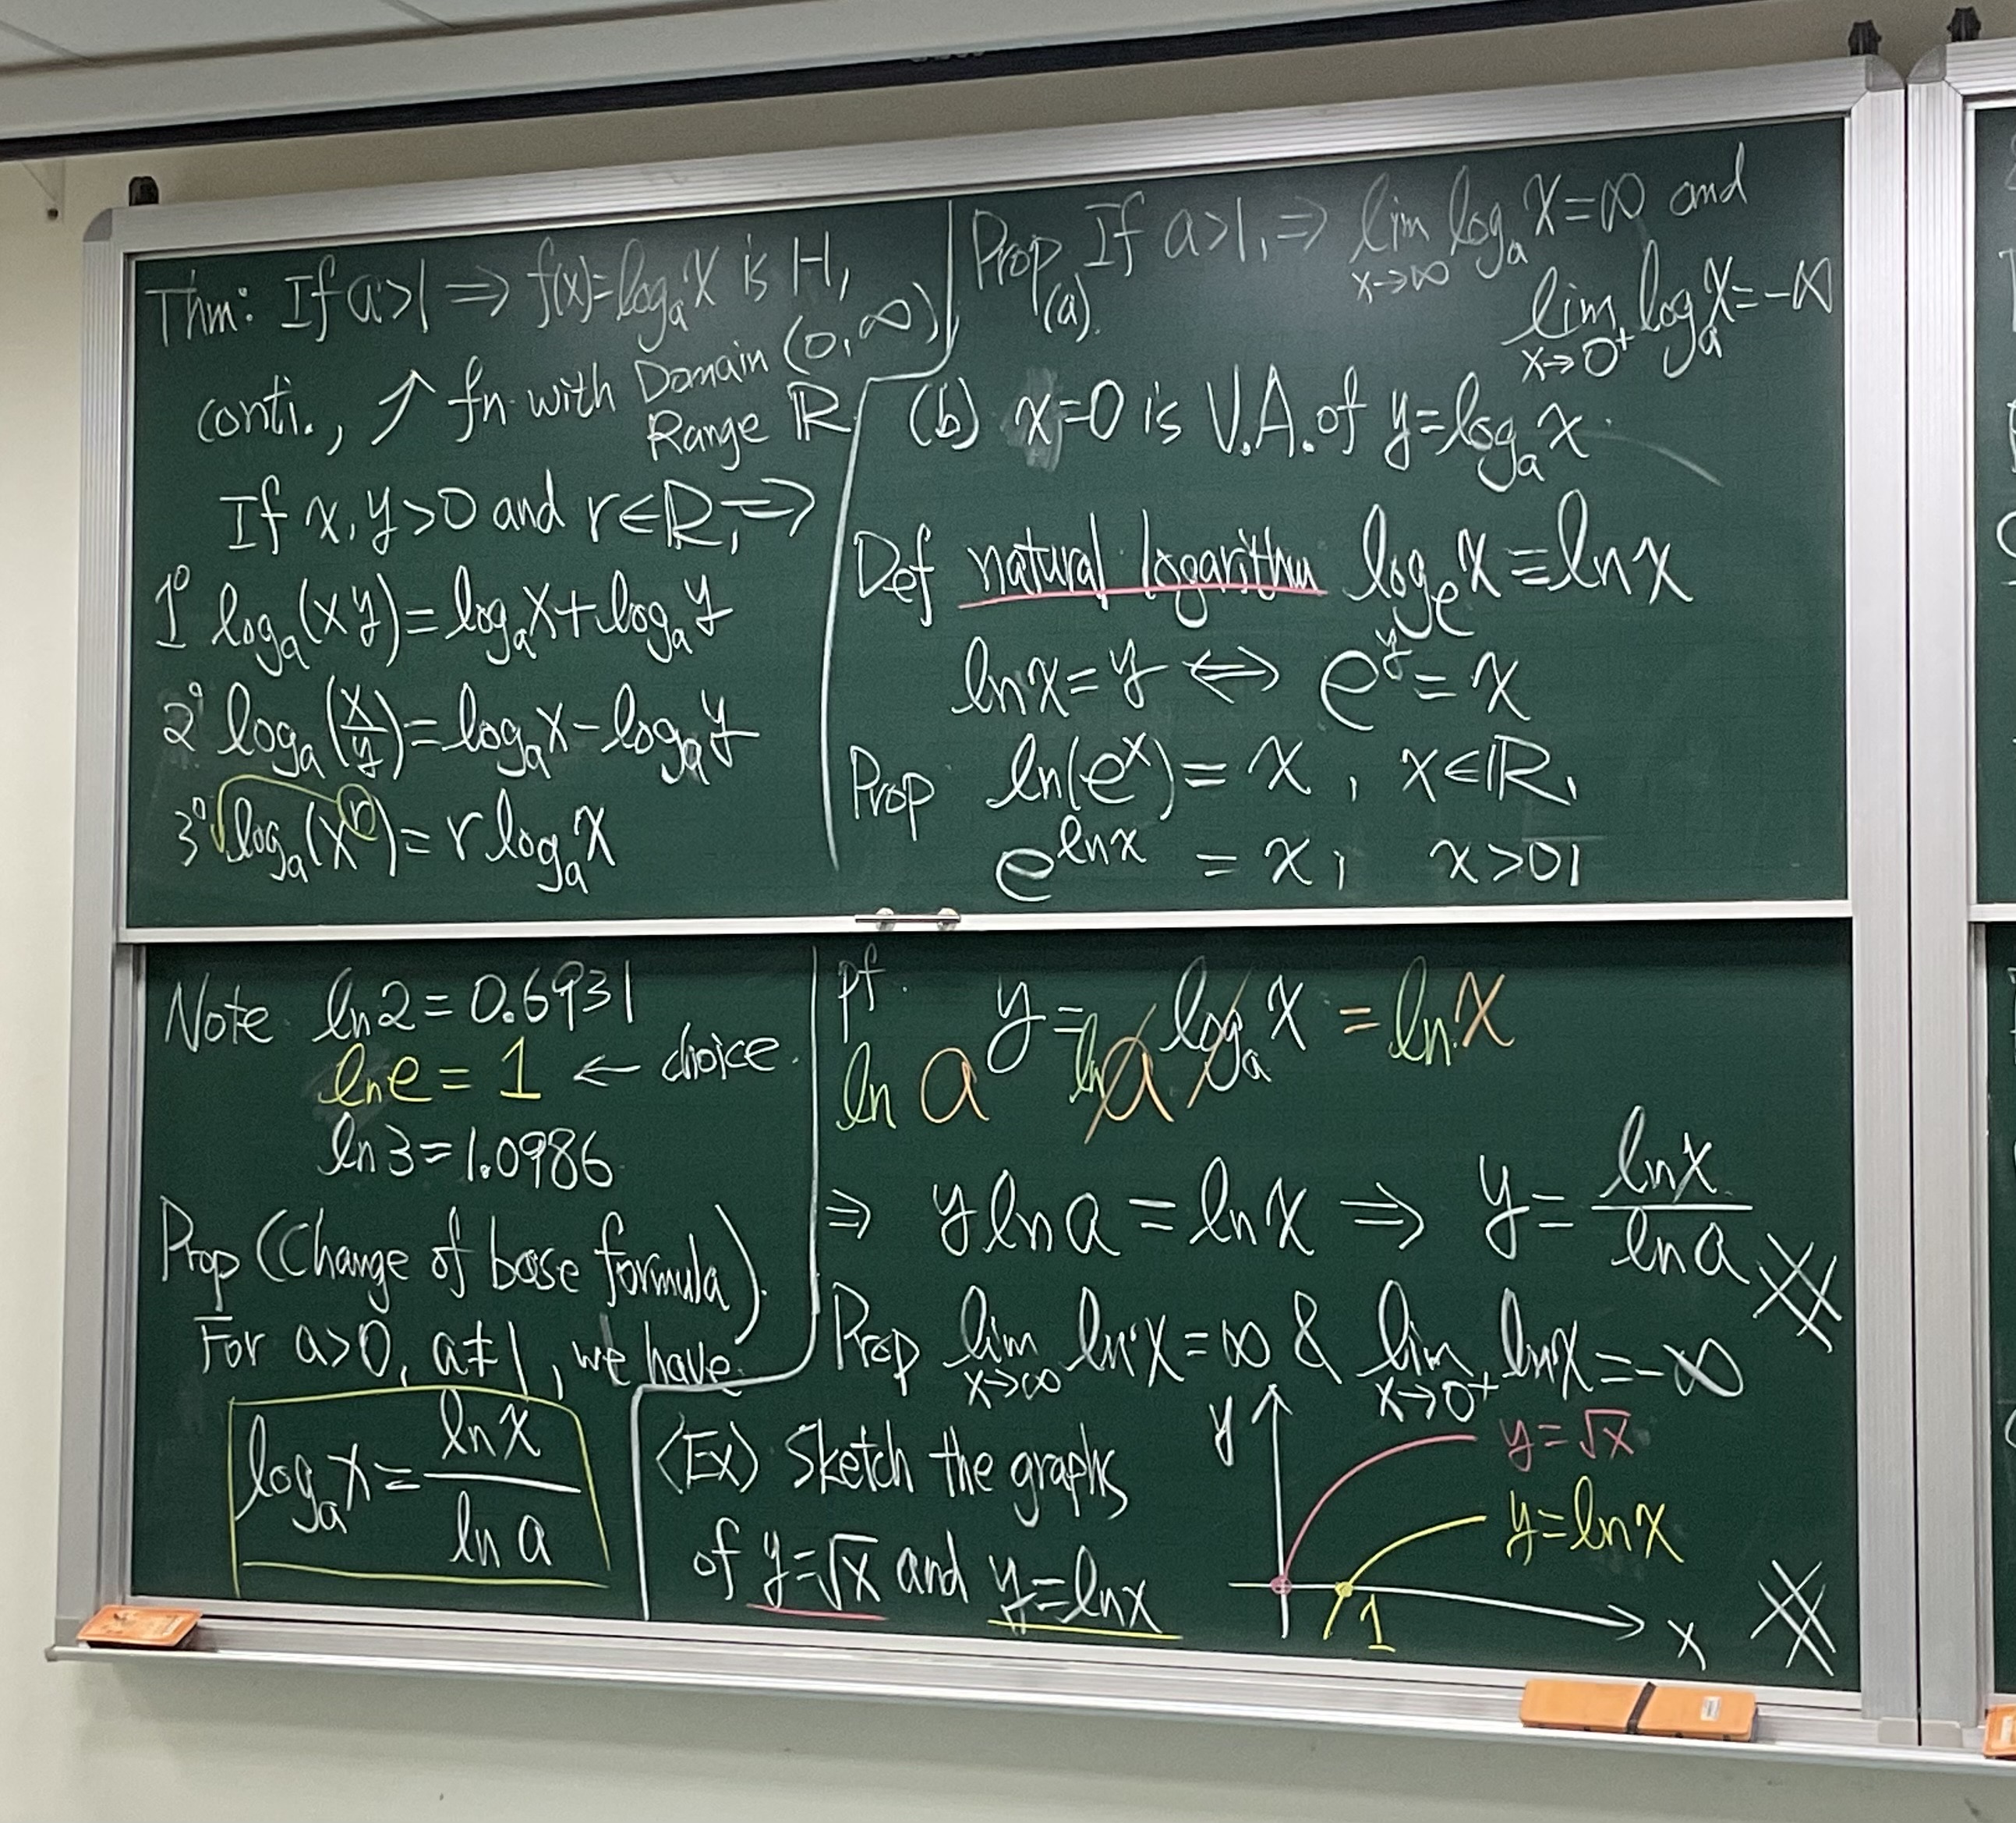 Thm: If a>1 ⇒ f(x)=logₐx is 1-1,
conti., ↗ fn with Domain (0,∞)
Range ℝ
If x, y>0 and r∈ℝ, ⇒
1° logₐ(xy)=logₐx+logₐy
2° logₐ(x/y)=logₐx-logₐy
3° logₐ(xʳ)=r logₐx
Prop If a>1, ⇒ lim_{x→∞} logₐx=∞ and
(a). lim_{x→0⁺} logₐx=-∞
(b) x=0 is V.A. of y=logₐx.
Def natural logarithm logₑx≡lnx
lnx=y ⇔ e^y=x
Prop ln(e^x)=x, x∈ℝ,
e^{lnx}=x, x>0,
Note ln2=0.6931
lne=1 ← choice.
ln3=1.0986
Prop (Change of base formula).
For a>0, a≠1, we have
logₐx=lnx/ln a
pf.
ln a^y = ln a^{logₐx} = ln x
⇒ y ln a = lnx ⇒ y = lnx/ln a
Prop lim_{x→∞} lnx=∞ & lim_{x→0⁺} lnx=-∞
⟨Ex⟩ Sketch the graphs
of y=√x and y=lnx
y
y=√x
y=lnx
1
x